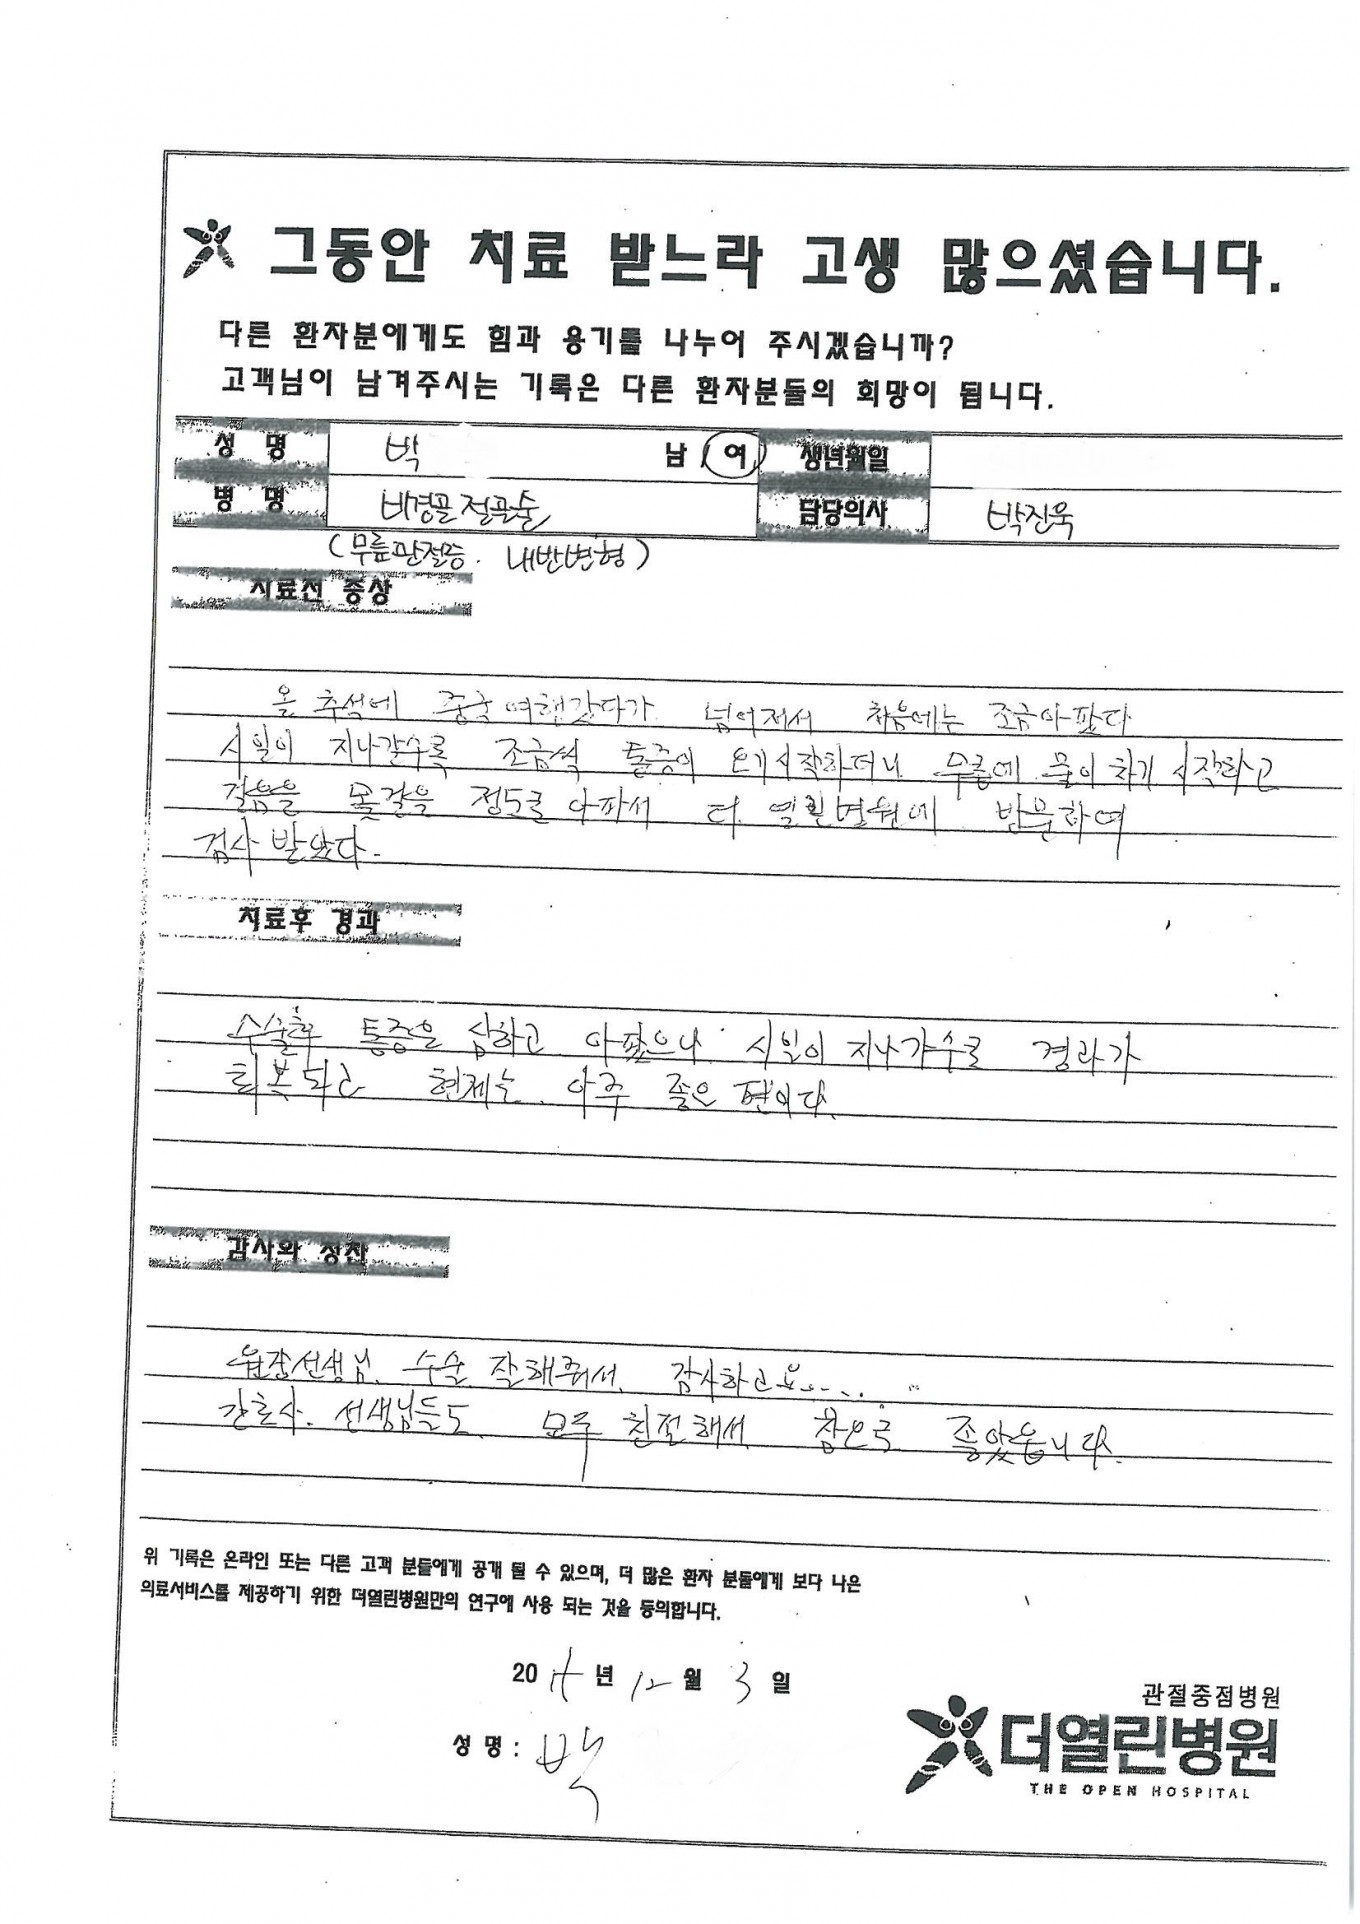 그동안 치료 받느라 고생 많으셨습니다.
다른 환자분에게도 힘과 용기를 나누어 주시겠습니까?
고객님이 남겨주시는 기록은 다른 환자분들의 희망이 됩니다.
성 명 박 남 / 여 생년월일
병 명 비경골절골술 담당의사 박진욱
(무릎관절증. 내반변형)
치료전 증상
올 추석에 중국여행갔다가 넘어져서 처음에는 조금아팠다
시일이 지나갈수록 조금씩 통증이 오기시작하더니 무릎에 물이 차기 시작하고
걸음을 못걸을 정도로 아파서 더 열린병원에 방문하여
검사 받았다.
치료후 경과
수술후 통증은 심하고 아팠으나 시일이 지나가수록 경과가
회복되고 현제는 아주 좋은 편이다.
감사와 칭찬
원장선생님 수술 잘해줘서 감사하고요.....
간호사 선생님들도 모두 친절해서 참으로 좋았읍니다.
위 기록은 온라인 또는 다른 고객 분들에게 공개 될 수 있으며, 더 많은 환자 분들에게 보다 나은
의료서비스를 제공하기 위한 더열린병원만의 연구에 사용 되는 것을 동의합니다.
20 년 12 월 3 일
성 명 : 박
관절중점병원
더열린병원
THE OPEN HOSPITAL